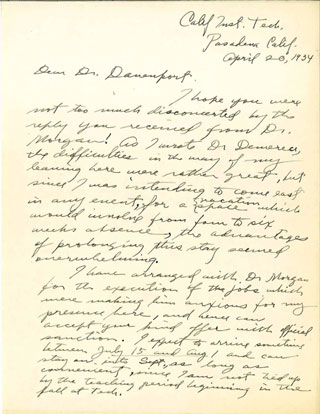 Calif Inst. Tech.
Pasadena Calif.
April 20, 1934
Dear Dr. Davenport:
I hope you were
not too much disconcerted by the
reply you received from Dr.
Morgan! As I wrote Dr Demerec,
the difficulties in the way of my
leaving here were rather great, but
since I was intending to come east
in any event, for a vacation which
would involve from four to six
weeks absence, the advantages
of prolonging this stay seemed
overwhelming.
I have arranged with Dr Morgan
for the execution of the jobs which
were making him anxious for my
presence here, and hence can
accept your kind offer with official
sanction. I expect to arrive sometime
between July 15 and Aug 1 and can
stay on into Sept, as long as
convenient, since I am not tied up
by the teaching period beginning in the
fall at Tech.